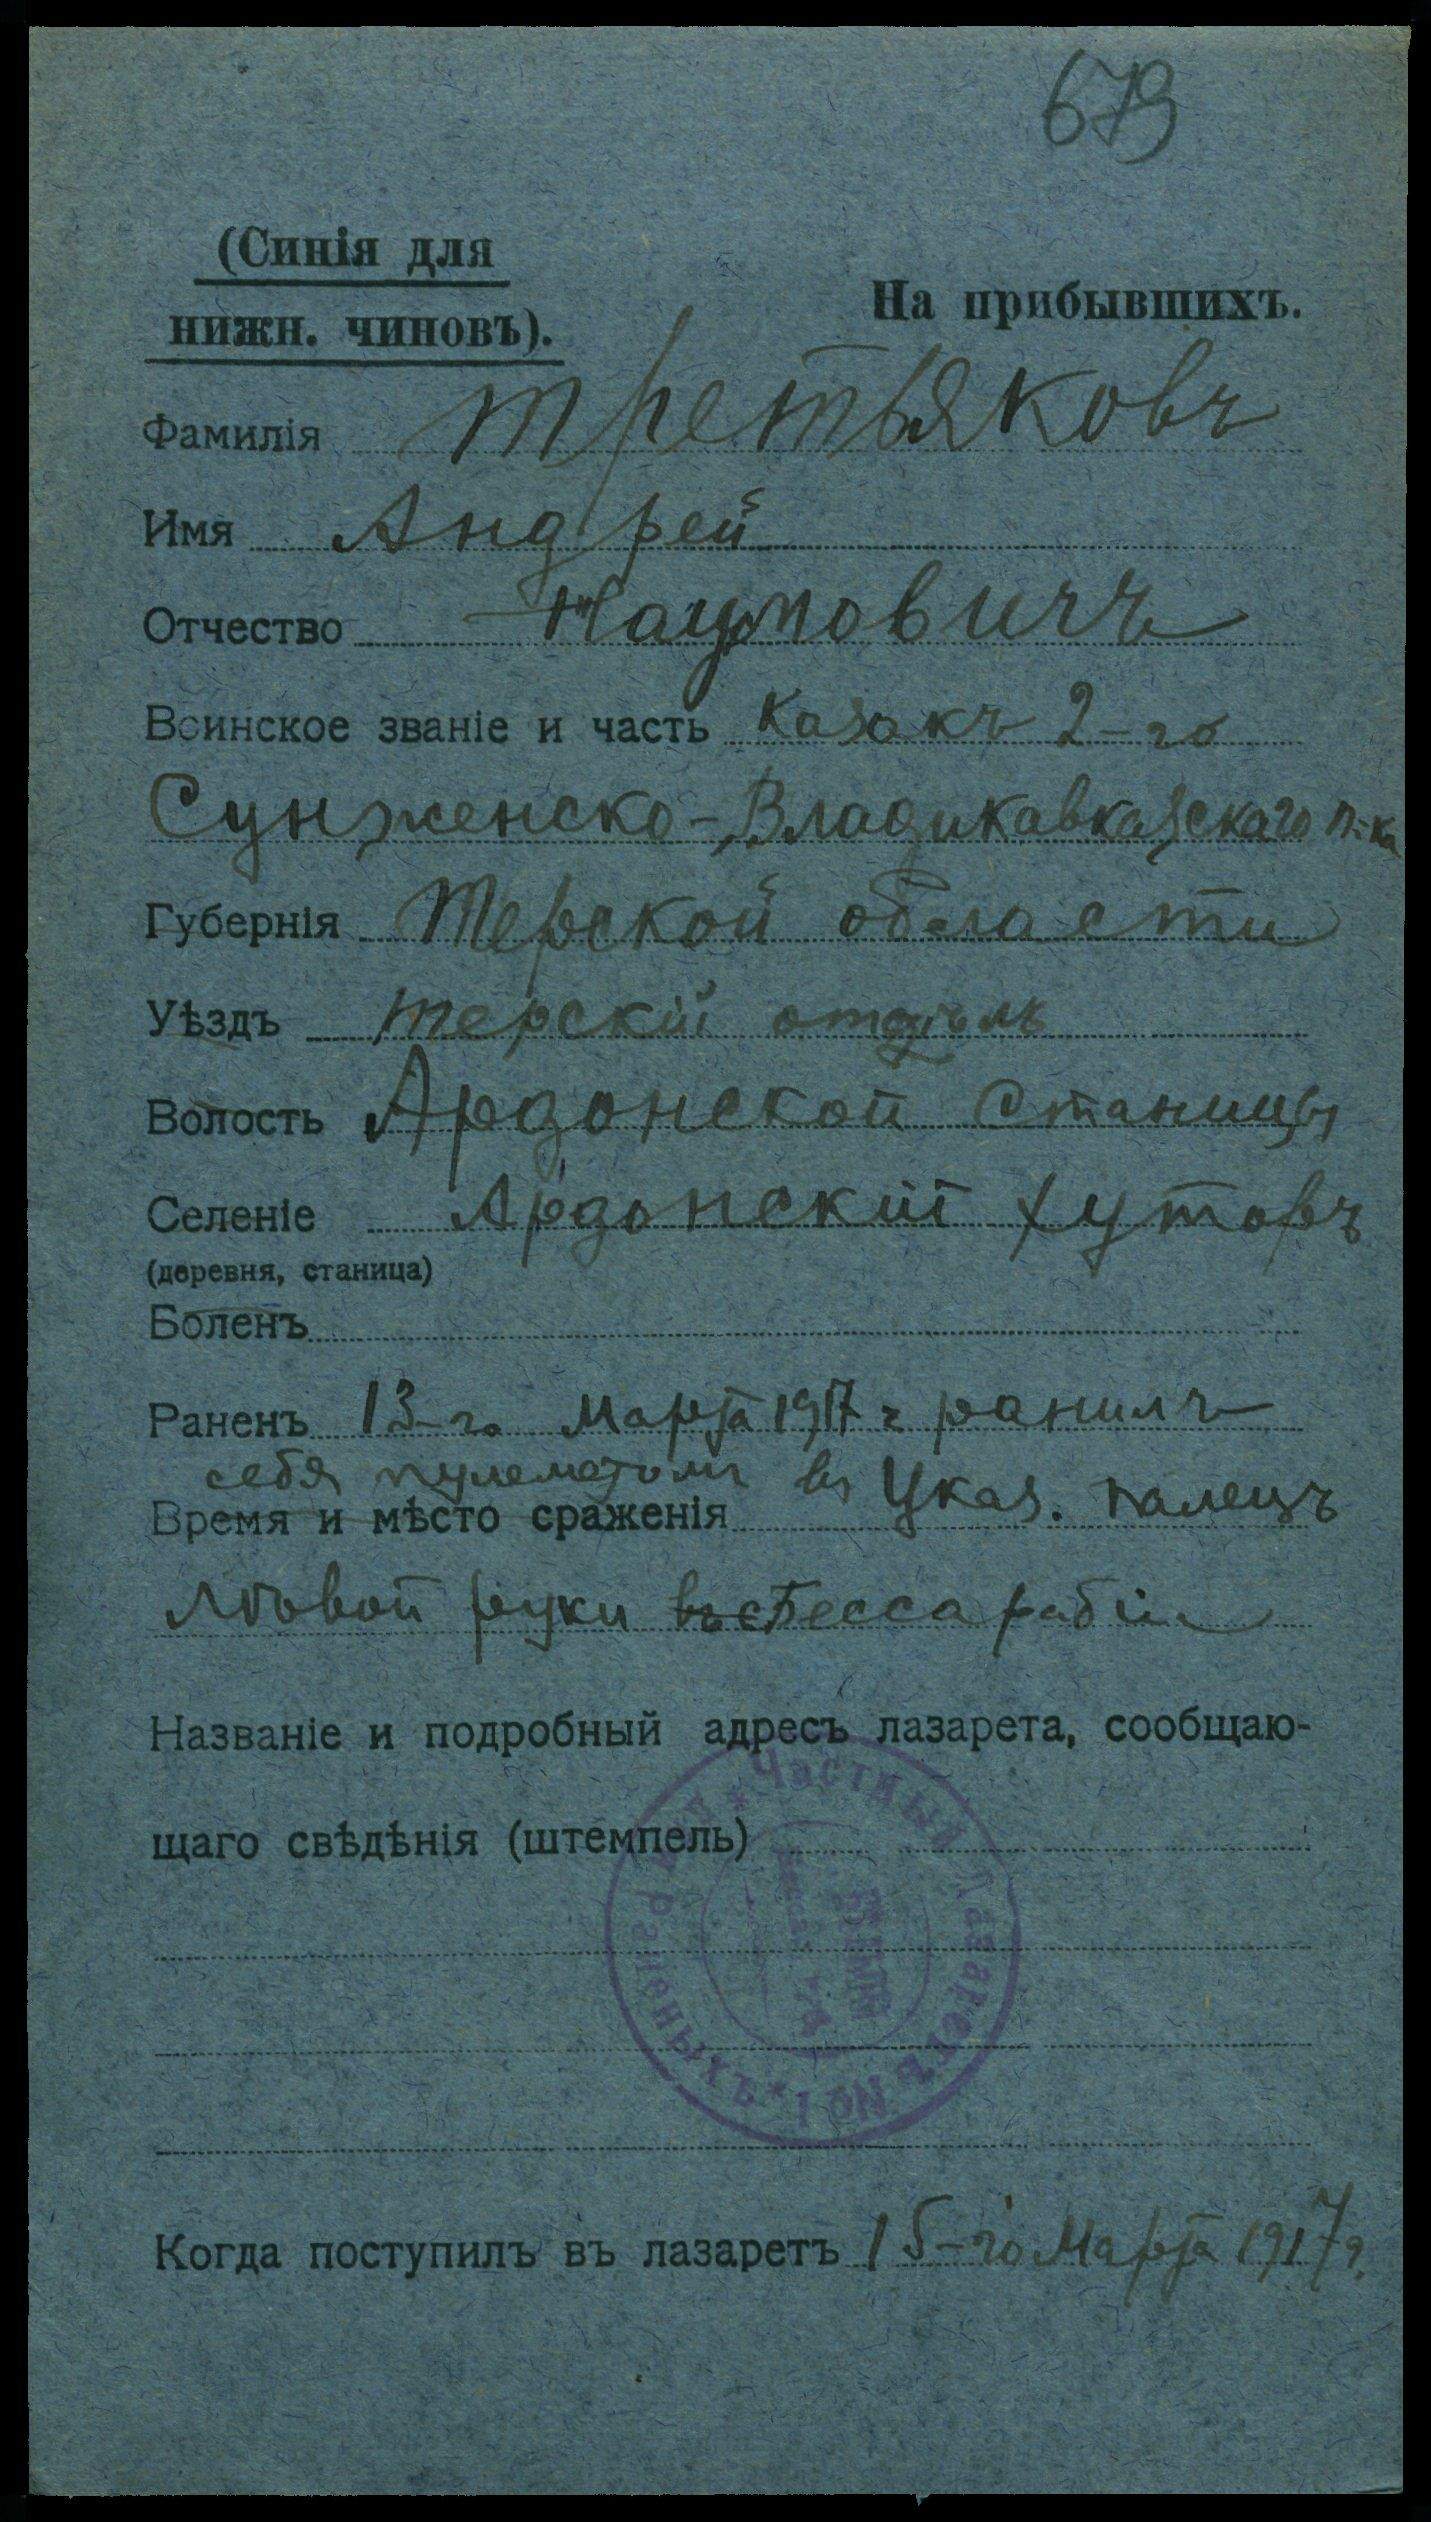 679
(Синія для
нижн. чиновъ).
На прибывшихъ.
Фамилія Третьяковъ
Имя Андрей
Отчество Наумовичъ
Воинское званіе и часть Казакъ 2-го
Сунженско-Владикавказскаго п-ка
Губернія Терской области
Уѣздъ терскій отдѣлъ
Волость Ардонской Станицы
Селеніе Ардонскій хуторъ
(деревня, станица)
Боленъ
Раненъ 13-го Марта 1917 г ранилъ
себя пулеметомъ въ Указ. палецъ
Время и мѣсто сраженія
лѣвой руки въ Бессарабіи
Названіе и подробный адресъ лазарета, сообщаю-
щаго свѣдѣнія (штемпель)
Частный Лазаретъ № 1 * раненыхъ
Когда поступилъ въ лазаретъ 15-го Марта 1917 г.